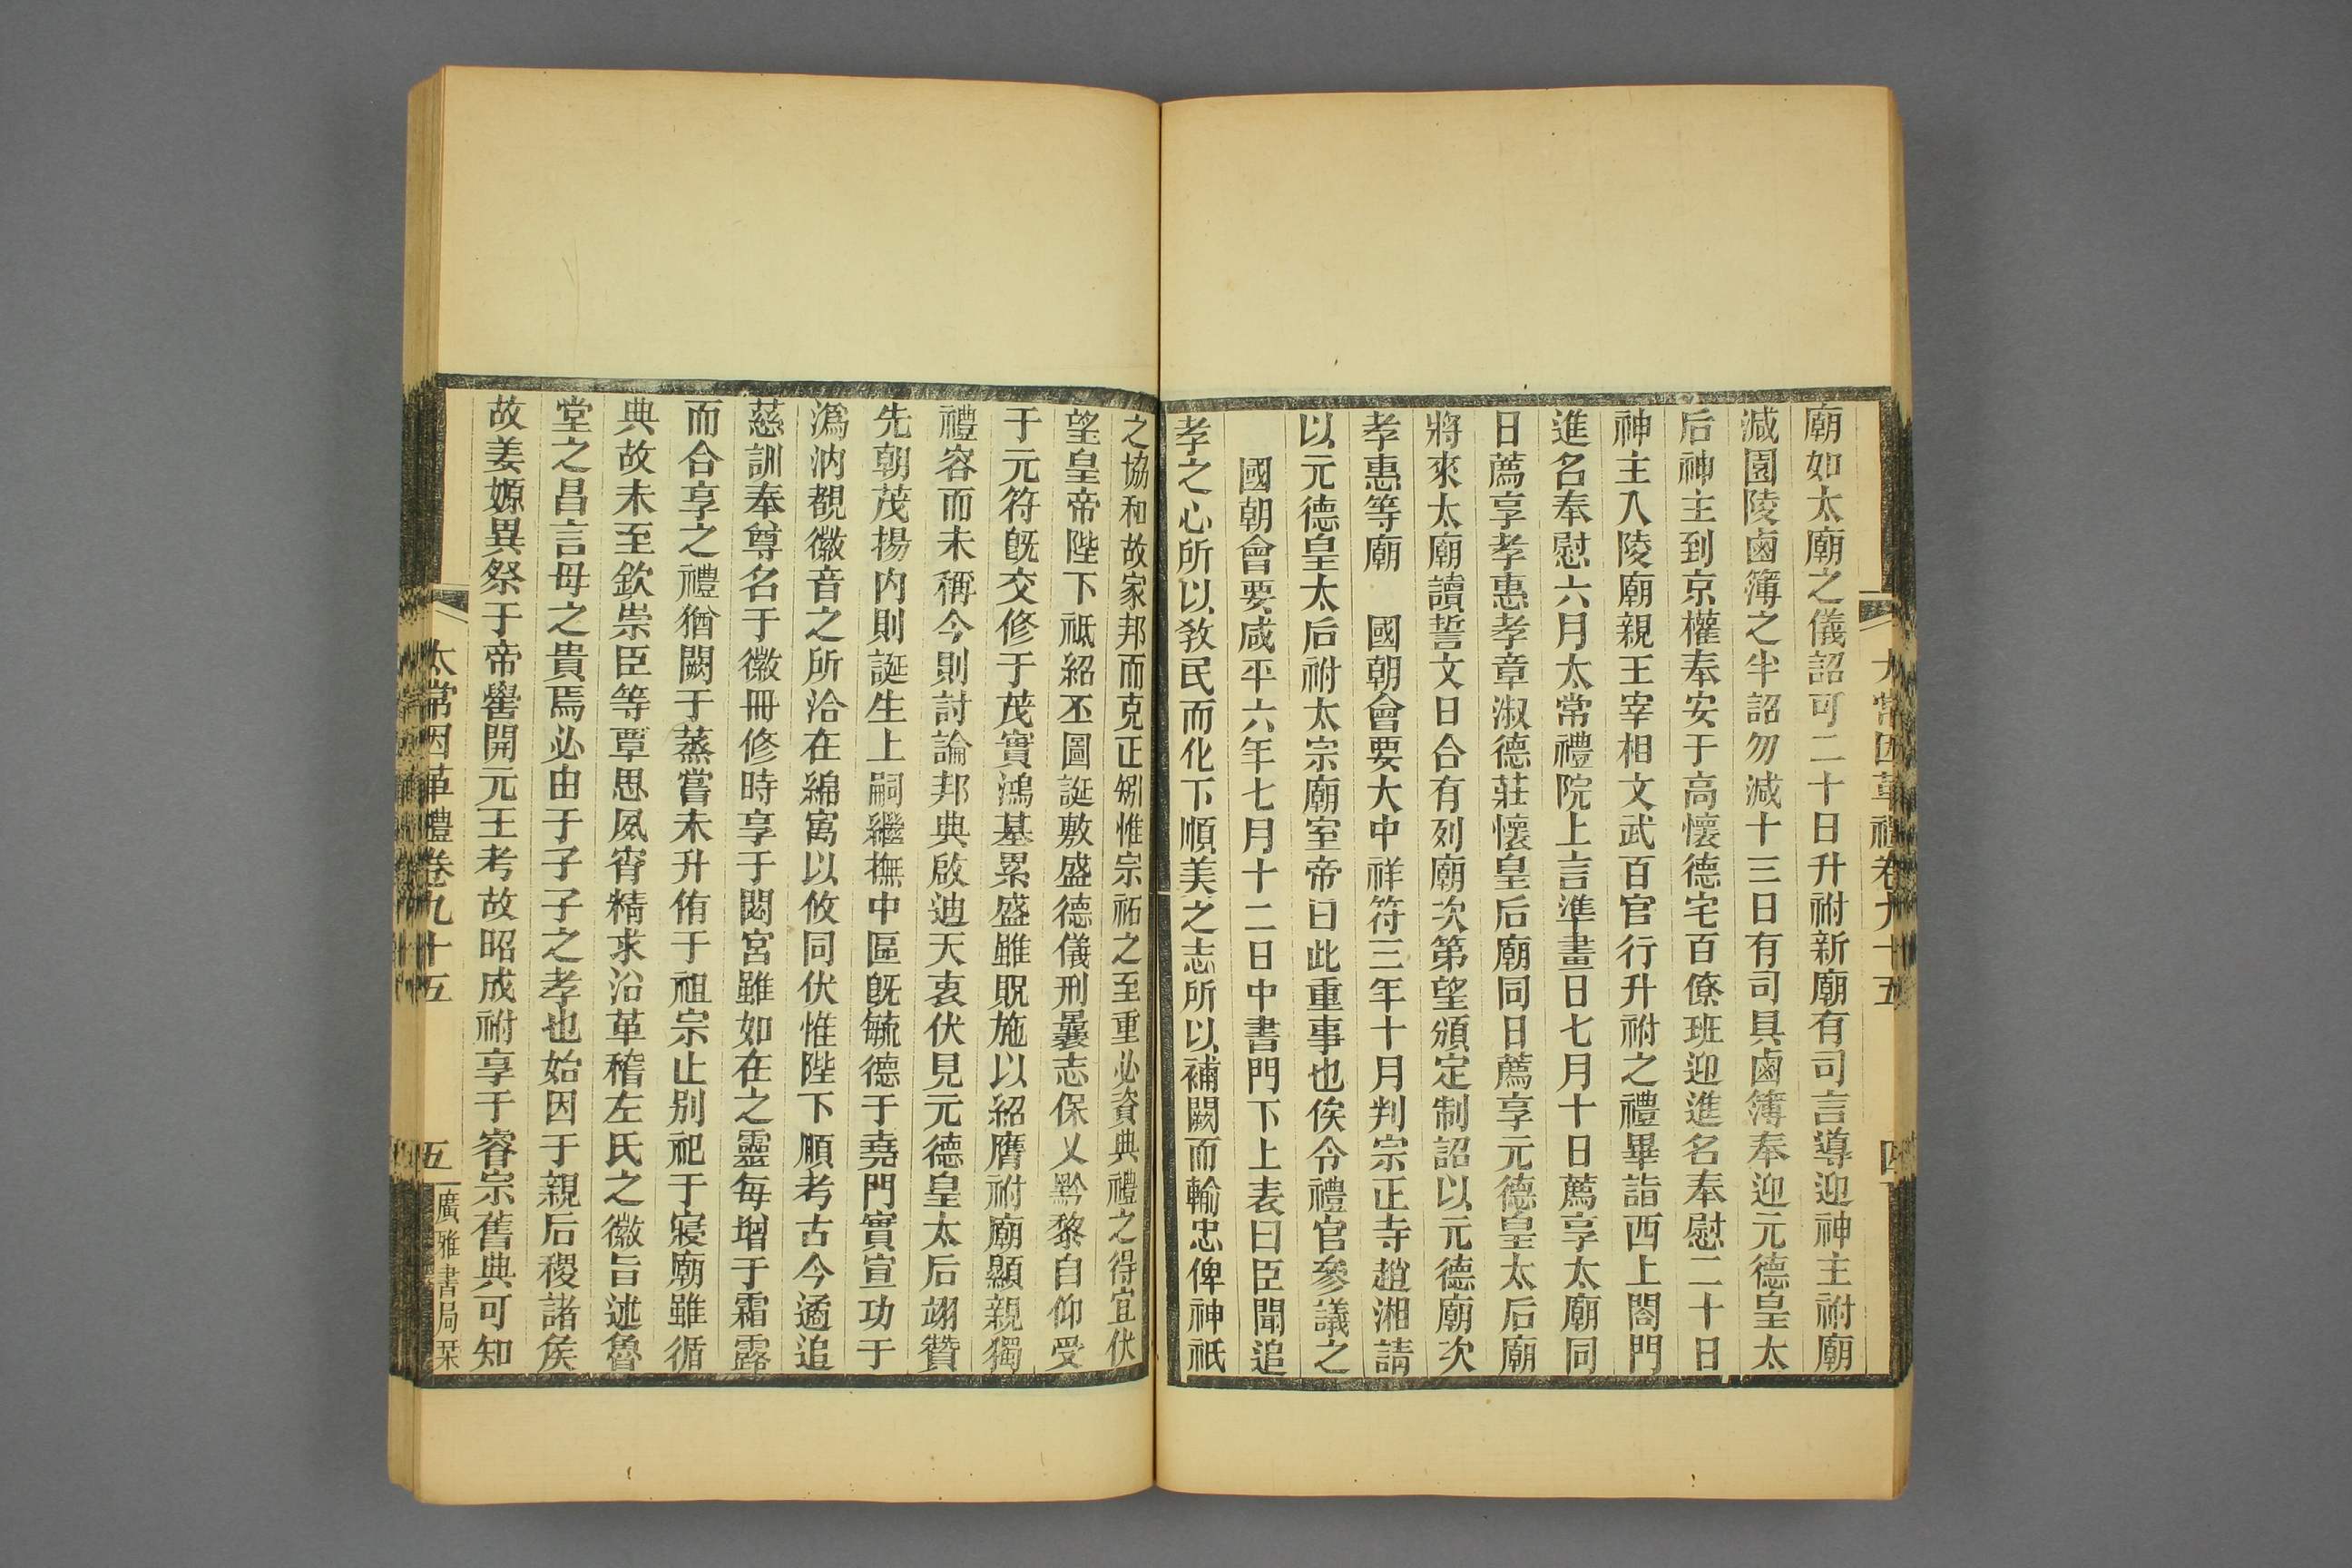 太常因革禮卷九十五 四
廟如太廟之儀詔可二十日升祔新廟有司言導迎神主祔廟
減園陵鹵簿之半詔勿減十三日有司具鹵簿奉迎元德皇太
后神主到京權奉安于高懷德宅百僚班迎進名奉慰二十日
神主入陵廟親王宰相文武百官行升祔之禮畢詣西上閤門
進名奉慰六月太常禮院上言準畫日七月十日薦享太廟同
日薦享孝惠孝章淑德莊懷皇后廟同日薦享元德皇太后廟
將來太廟讀誓文日合有列廟次第望頒定制詔以元德廟次
孝惠等廟　國朝會要大中祥符三年十月判宗正寺趙湘請
以元德皇太后祔太宗廟室帝曰此重事也俟令禮官參議之
國朝會要咸平六年七月十二日中書門下上表曰臣聞追
孝之心所以敎民而化下順美之志所以補闕而輸忠俾神祇
之協和故家邦而克正矧惟宗祏之至重必資典禮之得宜伏
望皇帝陛下祗紹丕圖誕敷盛德儀刑曩志保乂黔黎自仰受
于元符旣交修于茂實鴻基累盛雖貺施以紹膺祔廟顯親獨
禮容而未稱今則討論邦典啟迪天衷伏見元德皇太后翊贊
先朝茂揚內則誕生上嗣繼撫中區旣毓德于堯門實宣功于
溈汭覩徽音之所洽在綿寓以攸同伏惟陛下順考古今遹追
慈訓奉尊名于徽冊修時享于閟宮雖如在之靈每增于霜露
而合享之禮猶闕于蒸嘗未升侑于祖宗止别祀于寢廟雖循
典故未至欽崇臣等覃思夙宵精求沿革稽左氏之徽旨述魯
堂之昌言母之貴焉必由于子子之孝也始因于親后稷諸侯
故姜嫄異祭于帝嚳開元王考故昭成祔享于睿宗舊典可知
太常因革禮卷九十五 五 廣雅書局栞